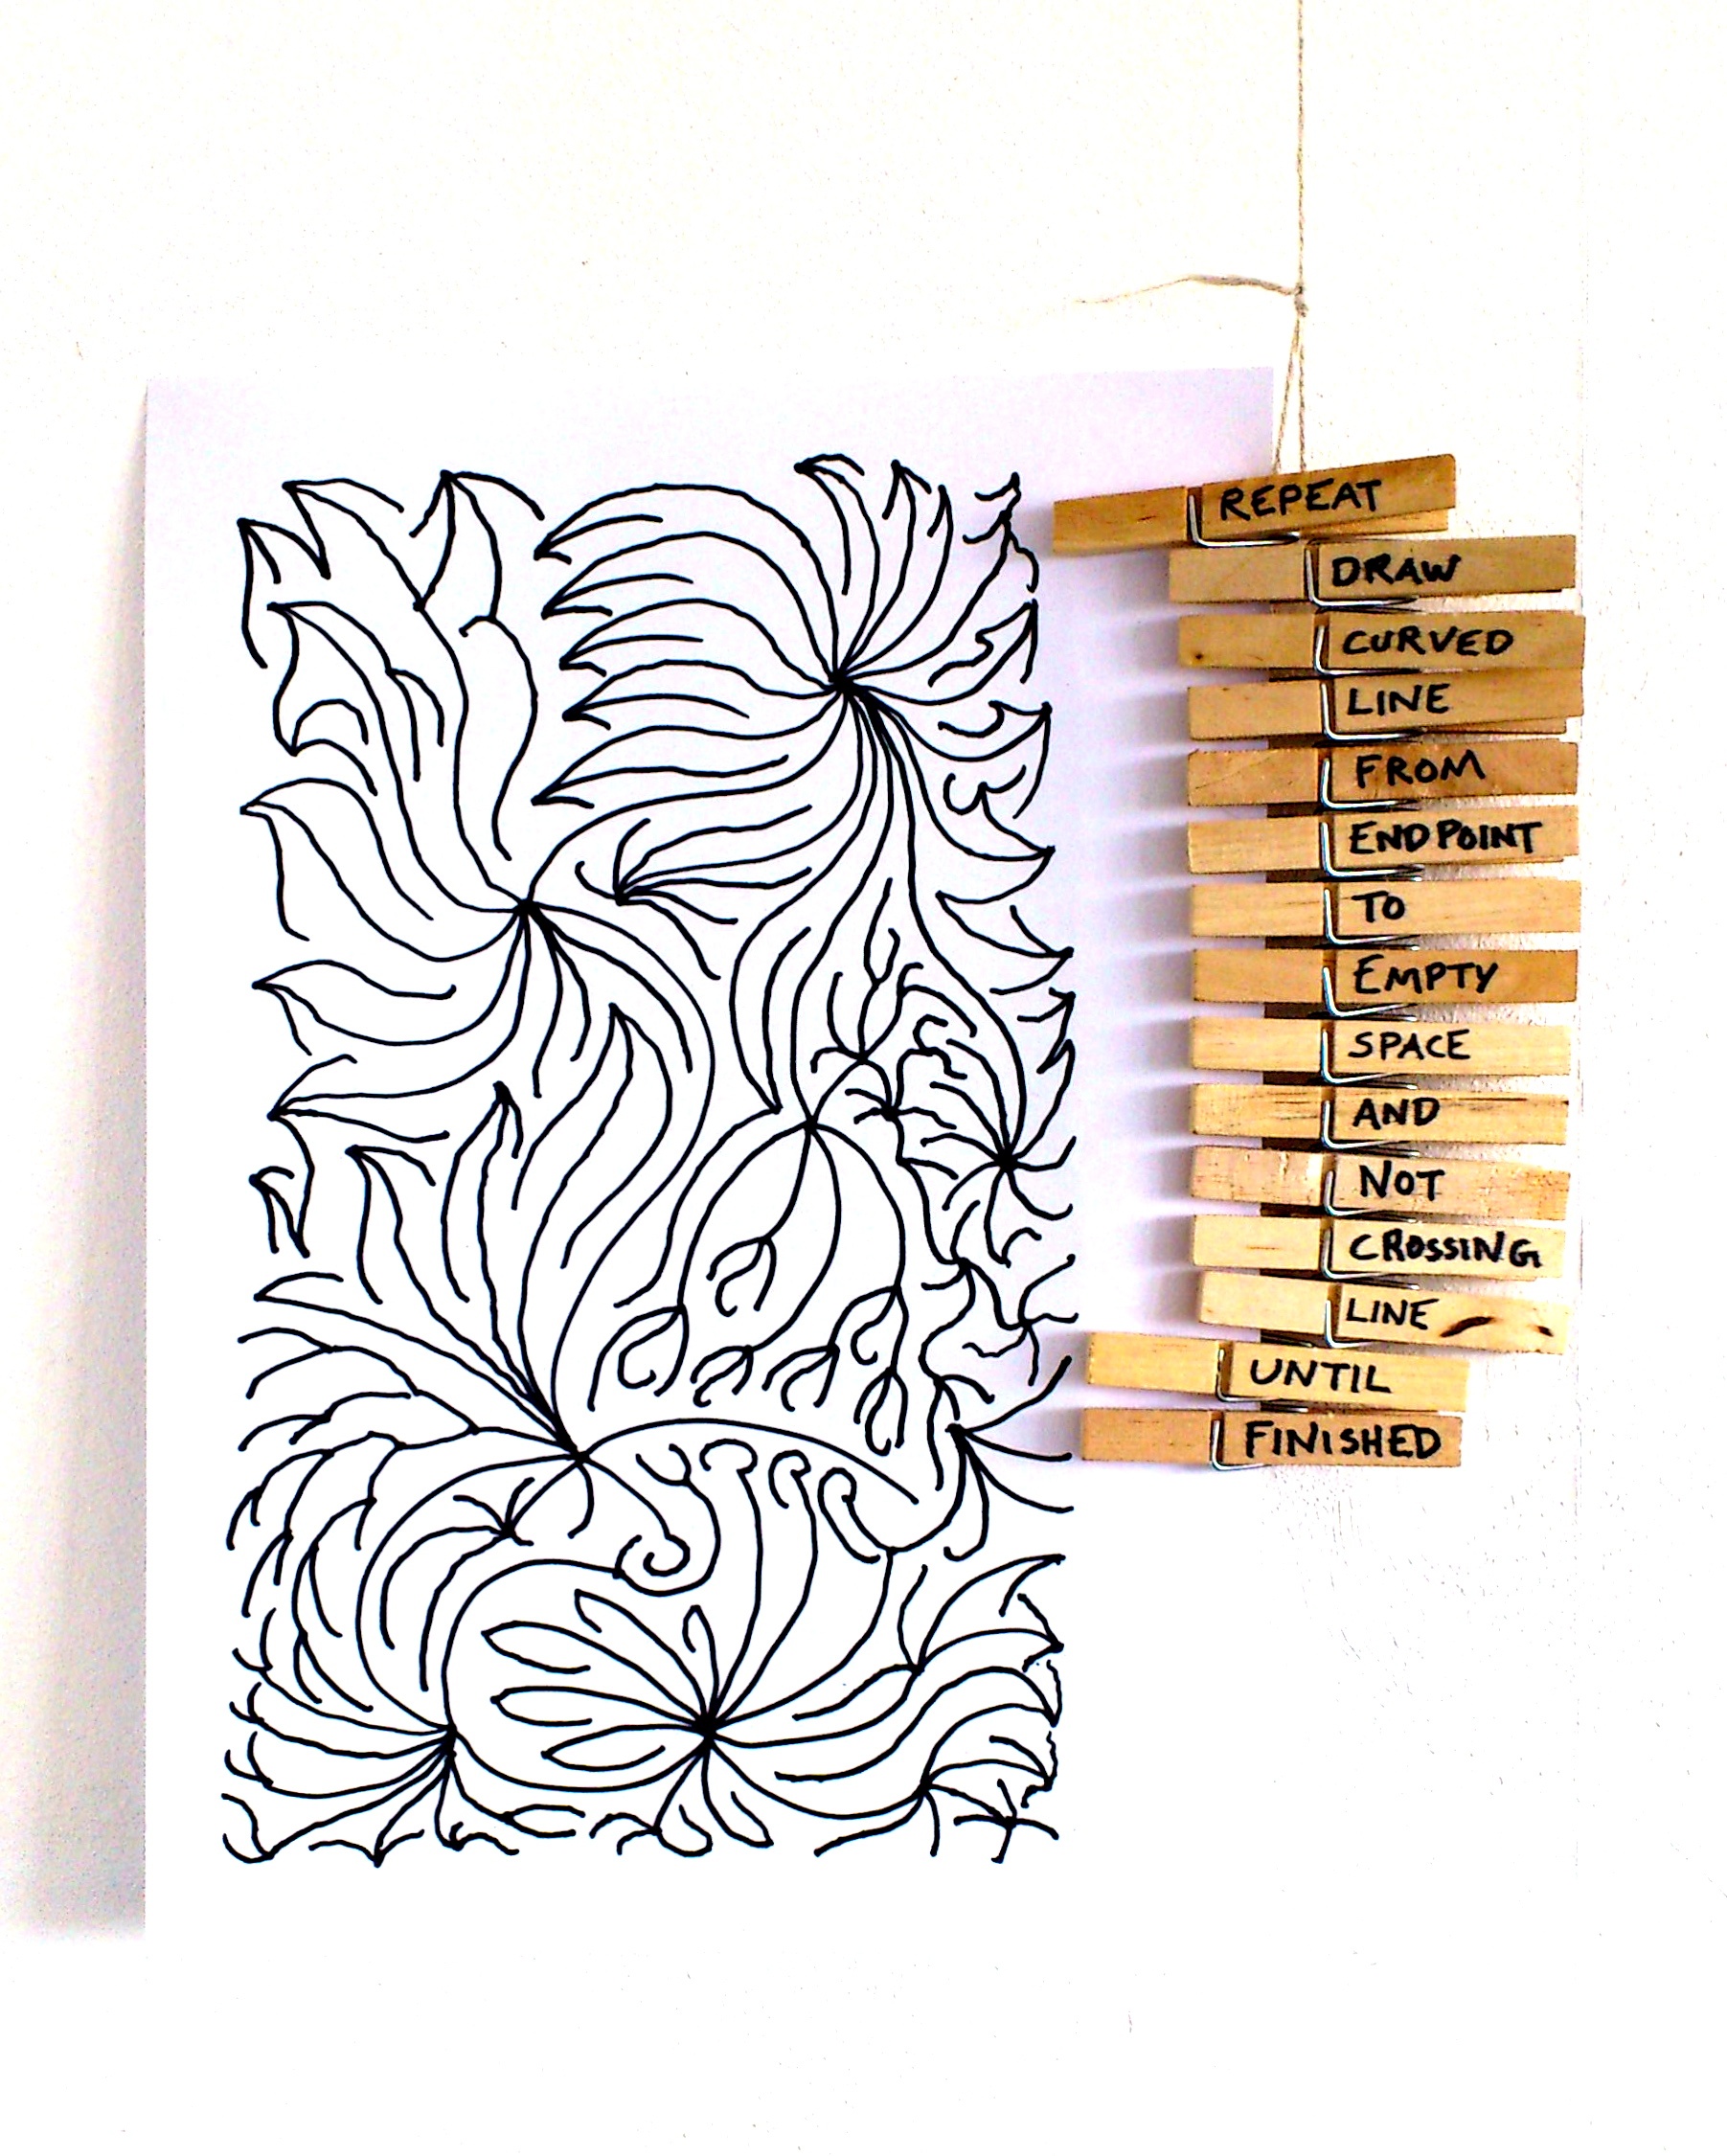 REPEAT
DRAW
CURVED
LINE
FROM
ENDPOINT
TO
EMPTY
SPACE
AND
NOT
CROSSING
LINE
UNTIL
FINISHED